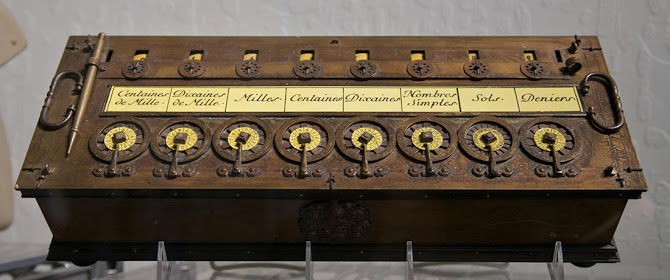 Centaines de Mille.
Dixaines de Mille.
Milles.
Centaines
Dixaines
Nombres Simples
Sols.
Deniers